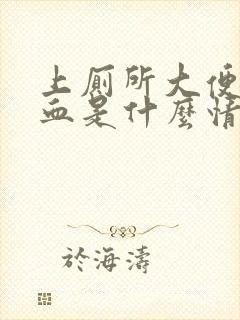 上厠所大便
血是什麼情
於海濤